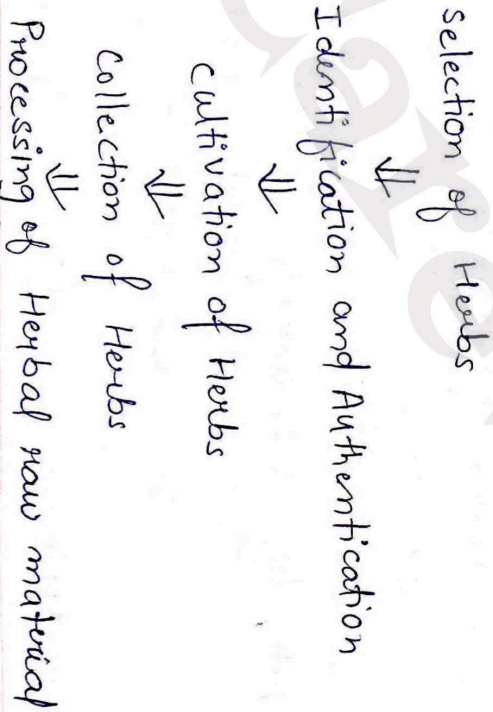 selection of Herbs
⇓
Identification and Authentication
⇓
cultivation of Herbs
⇓
Collection of Herbs
⇓
Processing of Herbal raw material